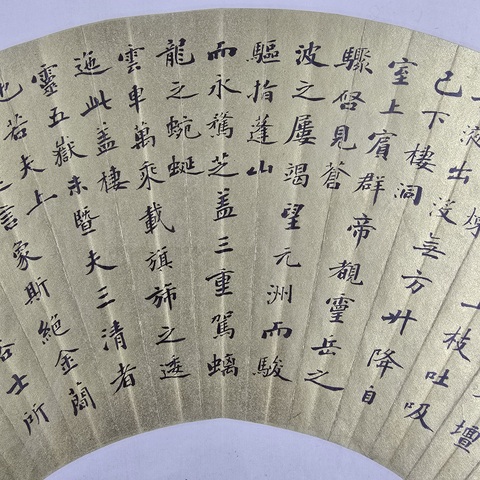 壇
液出
上枝吐吸
已下棲洞
沒無方升降自
室上賓群帝觀靈岳之
驟啓見蒼
波之屢竭望元洲而駿
驅指蓬山
而永驁芝蓋三重駕螭
龍之蜿蜒
雲車萬乘載旗旆之逶
迤此蓋棲
靈五嶽未暨夫三清者
也若夫上
言象斯絕金簡
士所